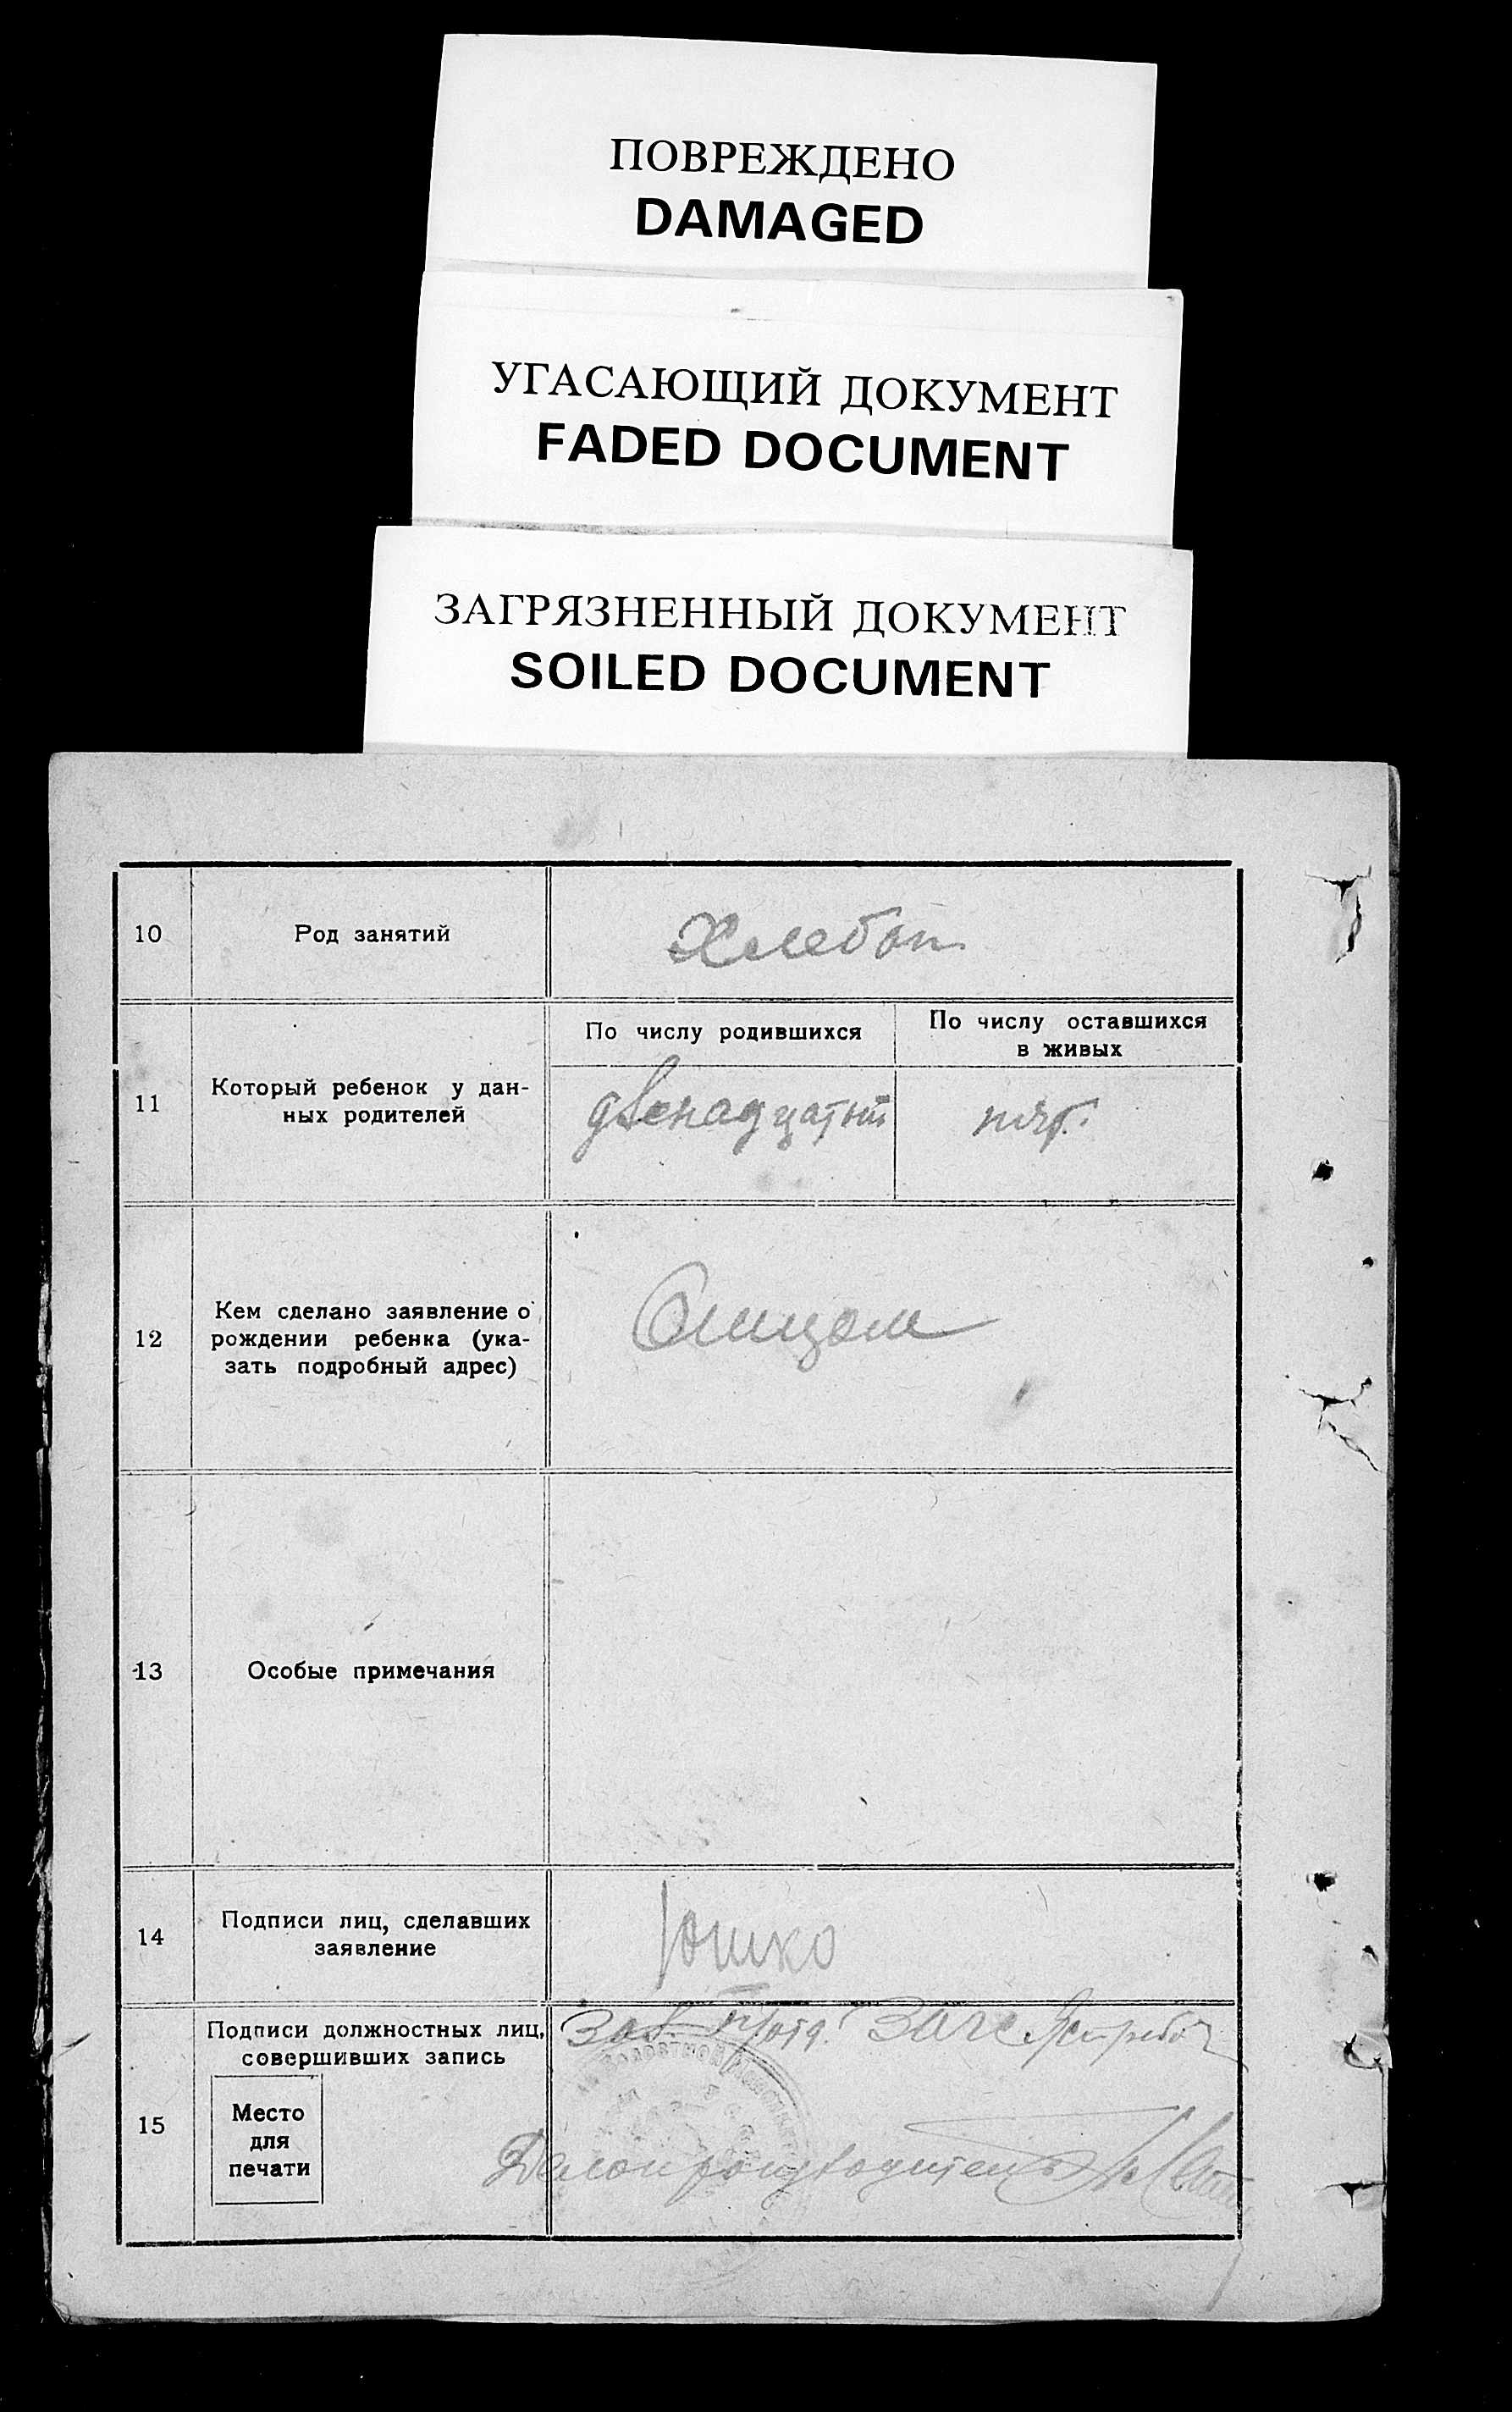 ПОВРЕЖДЕНО
DAMAGED
УГАСАЮЩИЙ ДОКУМЕНТ
FADED DOCUMENT
ЗАГРЯЗНЕННЫЙ ДОКУМЕНТ
SOILED DOCUMENT
10
Род занятий
Хлебоп.
11
Который ребенок у дан-
ных родителей
По числу родившихся
По числу оставшихся
в живых
двенадцатый
пят.
12
Кем сделано заявление о
рождении ребенка (ука-
зать подробный адрес)
Отцом
13
Особые примечания
14
Подписи лиц, сделавших
заявление
Юшко
15
Подписи должностных лиц,
совершивших запись
Место
для
печати
Зав. п/отд. ЗАГС
Делопроизводитель